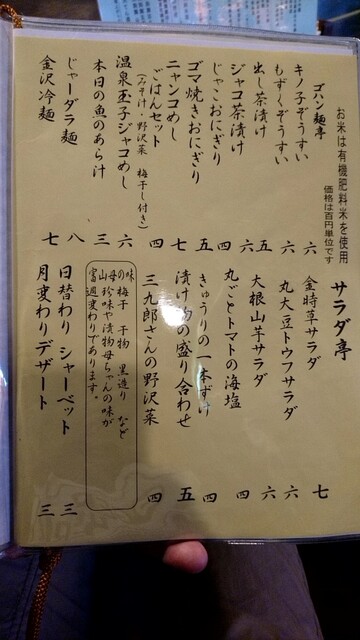 ゴハン麺亭
お米は有機肥料米を使用
価格は百円単位です
キノ子ぞうすい 六
もずくぞうすい 六
出し茶漬け 五
ジャコ茶漬け 六
じゃこおにぎり 四
ゴマ焼きおにぎり 五
ニャンコめし 四
ごはんセット 七
(みそ汁・野沢菜 梅干し付き)
温泉玉子ジャコめし 六
本日の魚のあら汁 三
じゃーダラ麺 八
金沢冷麺 七
サラダ亭
金時草サラダ 七
丸大豆トウフサラダ 六
大根山芋サラダ 六
丸ごとトマトの海塩 四
きゅうりの一本ずけ 四
漬け物の盛り合わせ 五
三九郎さんの野沢菜 四
味の梅干 干物 黒造り など
山母珍味や漬物母ちゃんの味が
富週変わりであります。
日替わり シャーベット 三
月変わりデザート 三